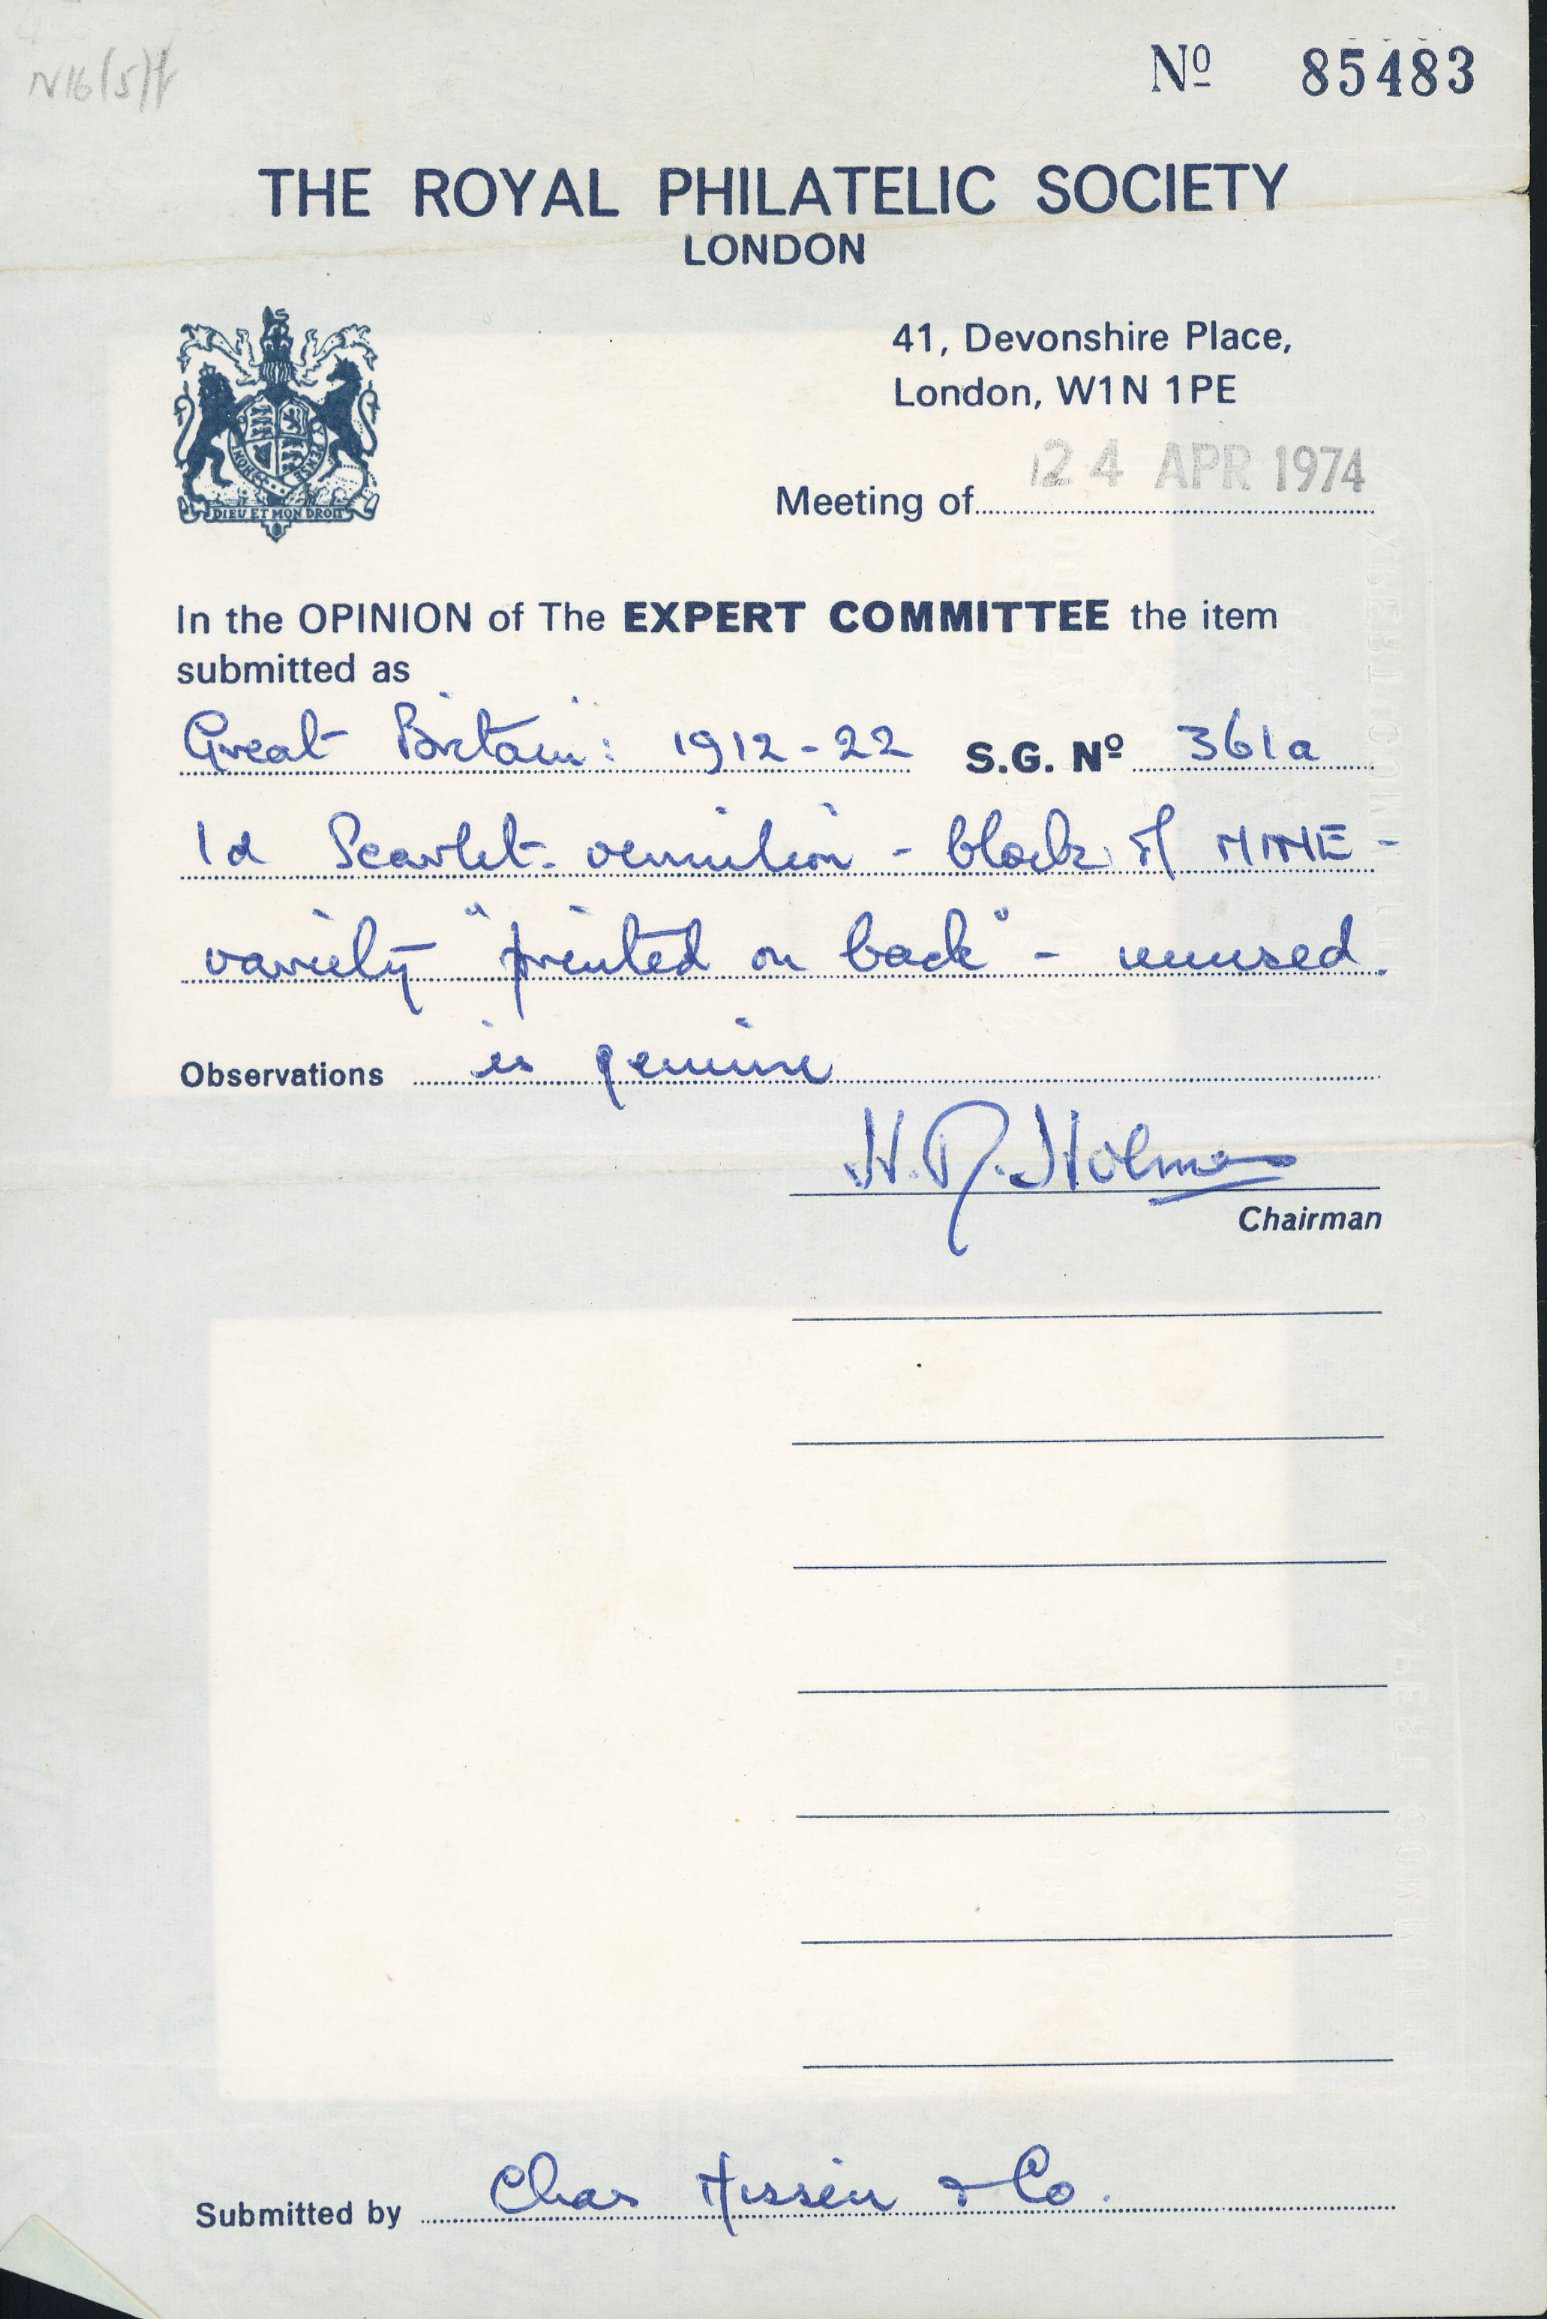 N16(5)f
Nº 85483
THE ROYAL PHILATELIC SOCIETY
LONDON
41, Devonshire Place,
London, W1N 1PE
DIEU ET MON DROIT
Meeting of 24 APR 1974
In the OPINION of The EXPERT COMMITTEE the item
submitted as
Great Britain: 1912-22 S.G. Nº 361a
1d Scarlet-vermilion - block of NINE -
variety "printed on back" - unused.
Observations is genuine
H.R. Holmes
Chairman
Submitted by Chas Nissen & Co.